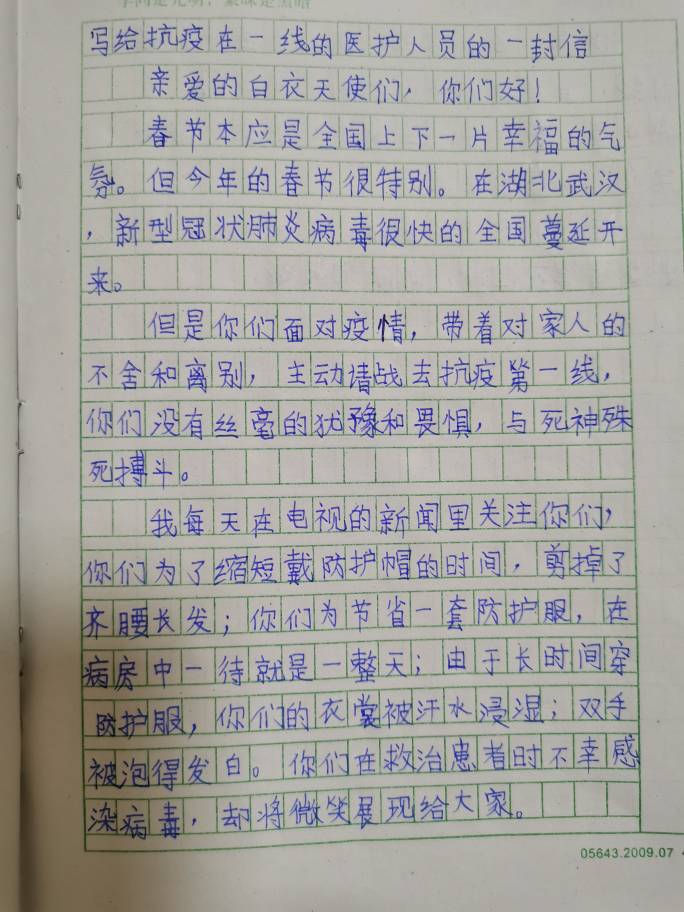 写给抗疫在一线的医护人员的一封信
亲爱的白衣天使们，你们好！
春节本应是全国上下一片幸福的气
氛。但今年的春节很特别。在湖北武汉
，新型冠状肺炎病毒很快的全国蔓延开
来。
但是你们面对疫情，带着对家人的
不舍和离别，主动请战去抗疫第一线，
你们没有丝毫的犹豫和畏惧，与死神殊
死搏斗。
我每天在电视的新闻里关注你们，
你们为了缩短戴防护帽的时间，剪掉了
齐腰长发；你们为节省一套防护服，在
病房中一待就是一整天；由于长时间穿
防护服，你们的衣裳被汗水浸湿；双手
被泡得发白。你们在救治患者时不幸感
染病毒，却将微笑展现给大家。
05643.2009.07